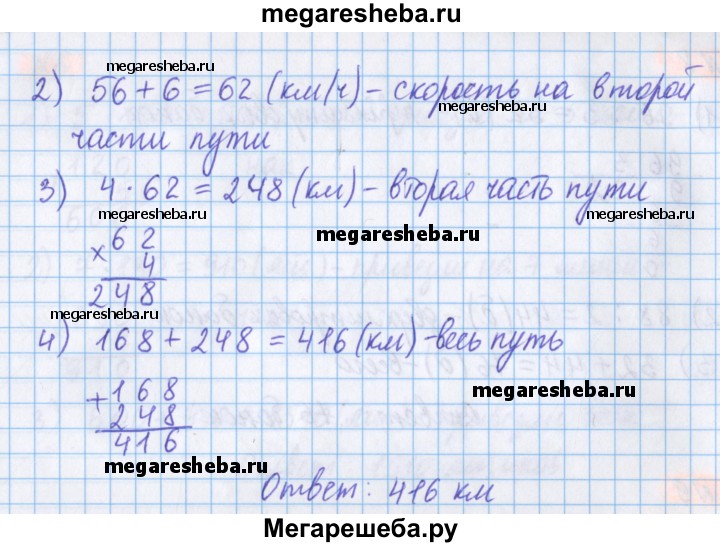 megaresheba.ru
megaresheba.ru
2) 56 + 6 = 62 (км/ч) - скорость на второй
megaresheba.ru
части пути
megaresheba.ru
3) 4 · 62 = 248 (км) - вторая часть пути
megaresheba.ru
megaresheba.ru
megaresheba.ru
× 62
4
248
megaresheba.ru
4) 168 + 248 = 416 (км) - весь путь
megaresheba.ru
+ 168
248
416
megaresheba.ru
megaresheba.ru
Ответ: 416 км
Мегарешеба.ру